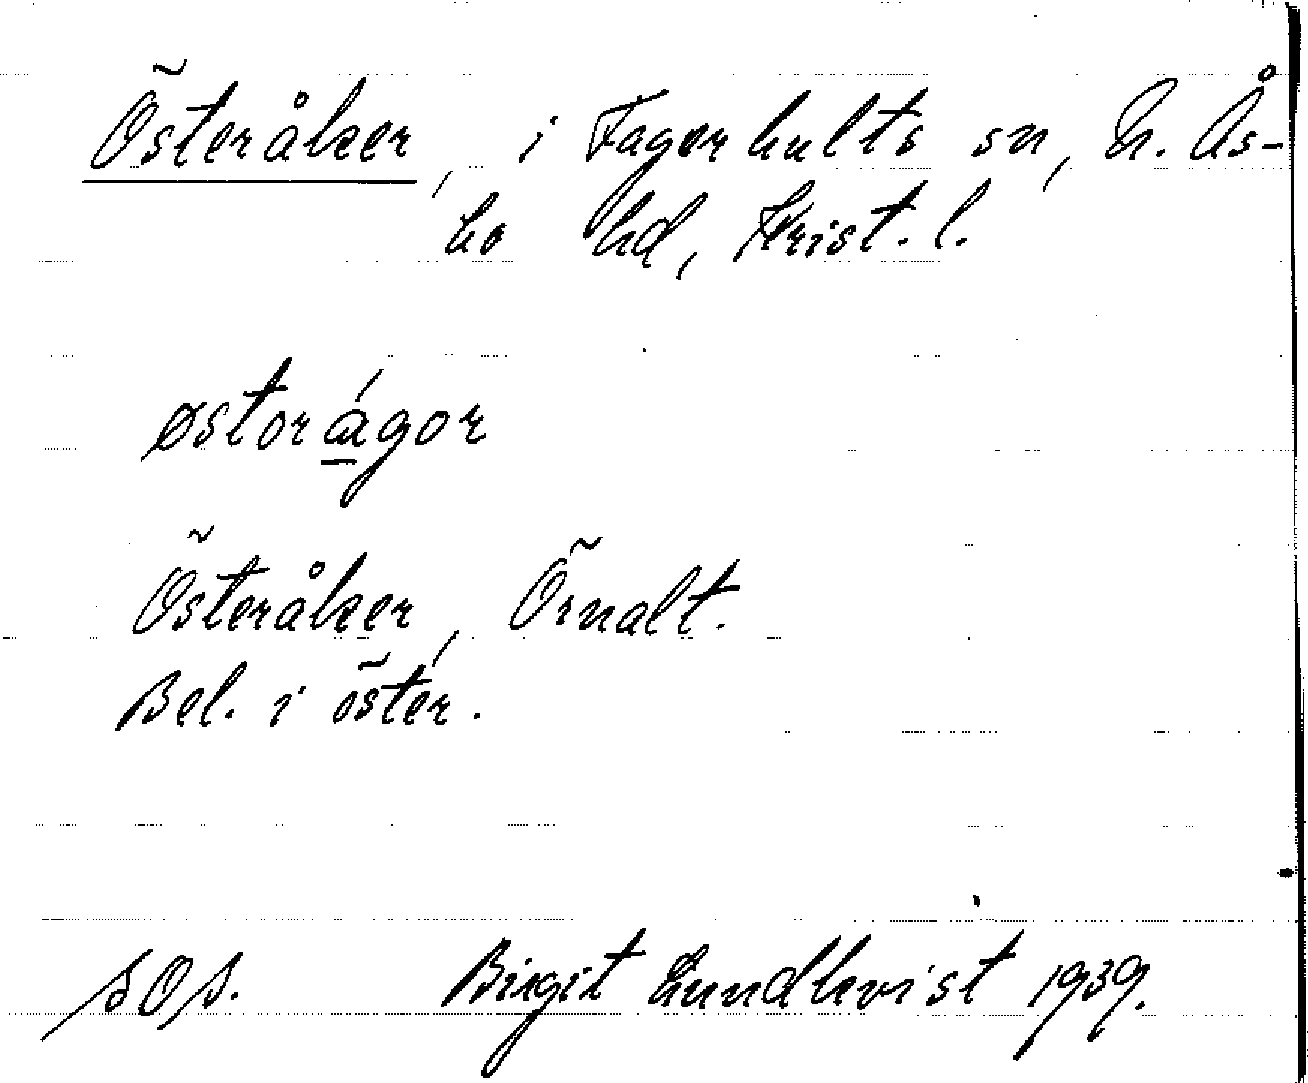 Österåker, i Fagerhults sn, N. Ås-
bo hd, Krist. l.
østorágor
Österåker, Örnalt.
Bel. i öster.
SOS. Birgit Lundkvist 1939.